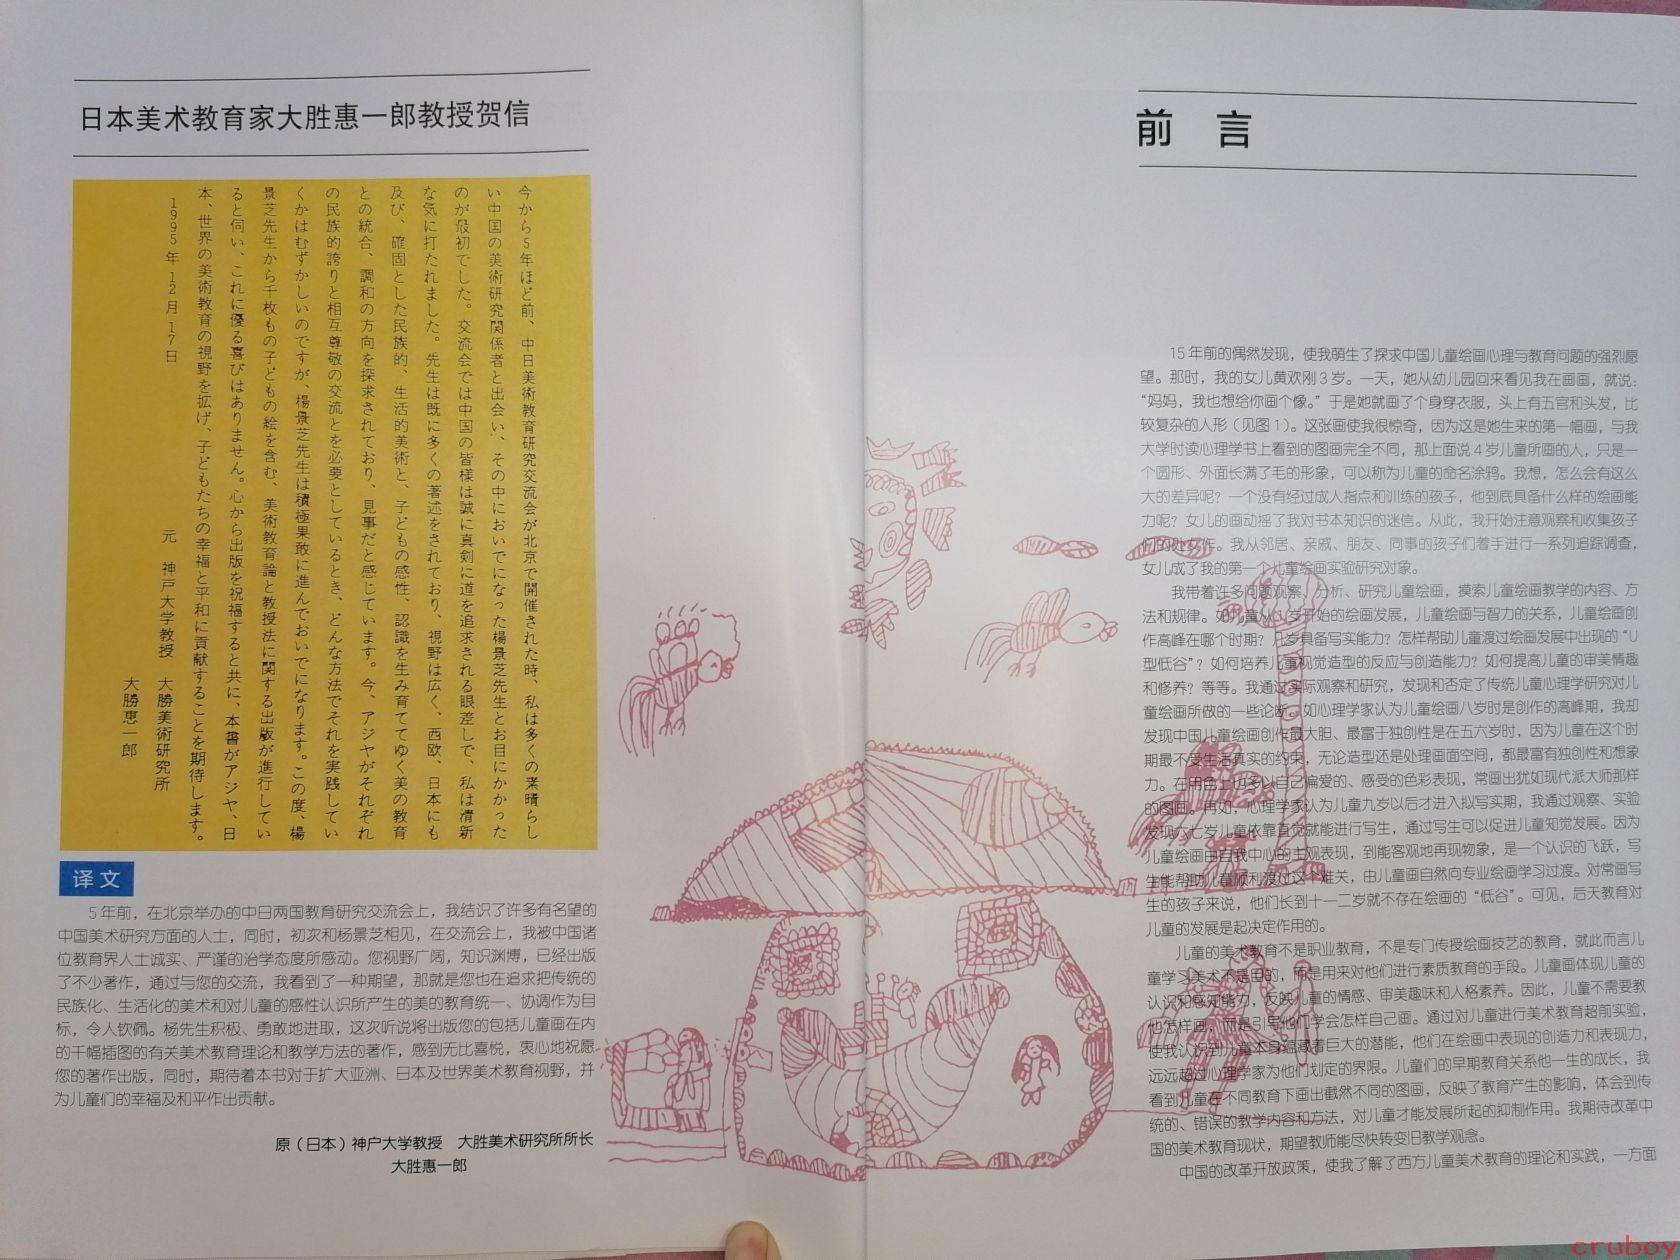 日本美术教育家大胜惠一郎教授贺信
今から5年ほど前、中日美術教育研究交流会が北京で開催された時、私は多くの素晴らし
い中国の美術研究関係者と出会い、その中においでになった楊景芝先生とお目にかかった
のが最初でした。交流会では中国の皆様は誠に真剣に道を追求される眼差しで、私は清新
な気に打たれました。先生は既に多くの著述をされており、視野は広く、西欧、日本にも
及び、確固とした民族的、生活的美術と、子どもの感性、認識を生み育ててゆく美の教育
との統合、調和の方向を探求されており、見事だと感じています。今、アジヤがそれぞれ
の民族的誇りと相互尊敬の交流とを必要としているとき、どんな方法でそれを実践してい
くかはむずかしいのですが、楊景芝先生は積極果敢に進んでおいでになります。この度、楊
景芝先生から千枚もの子どもの絵を含む、美術教育論と教授法に関する出版が進行してい
ると伺い、これに優る喜びはありません。心から出版を祝福すると共に、本書がアジヤ、日
本、世界の美術教育の視野を拡げ、子どもたちの幸福と平和に貢献することを期待します。
1995年12月17日
元 神戸大学教授 大勝美術研究所
大勝惠一郎
译文
5年前，在北京举办的中日两国教育研究交流会上，我结识了许多有名望的
中国美术研究方面的人士，同时，初次和杨景芝相见，在交流会上，我被中国诸
位教育界人士诚实、严谨的治学态度所感动。您视野广阔，知识渊博，已经出版
了不少著作，通过与您的交流，我看到了一种期望，那就是您也在追求把传统的
民族化、生活化的美术和对儿童的感性认识所产生的美的教育统一、协调作为目
标，令人钦佩。杨先生积极、勇敢地进取，这次听说将出版您的包括儿童画在内
的千幅插图的有关美术教育理论和教学方法的著作，感到无比喜悦，衷心地祝愿
您的著作出版，同时，期待着本书对于扩大亚洲、日本及世界美术教育视野，并
为儿童们的幸福及和平作出贡献。
原（日本）神户大学教授 大胜美术研究所所长
大胜惠一郎
前 言
15年前的偶然发现，使我萌生了探求中国儿童绘画心理与教育问题的强烈愿
望。那时，我的女儿黄欢刚3岁。一天，她从幼儿园回来看见我在画画，就说：
“妈妈，我也想给你画个像。”于是她就画了个身穿衣服，头上有五官和头发，比
较复杂的人形（见图1）。这张画使我很惊奇，因为这是她生来的第一幅画，与我
大学时读心理学书上看到的图画完全不同，那上面说4岁儿童所画的人，只是一
个圆形、外面长满了毛的形象，可以称为儿童的命名涂鸦。我想，怎么会有这么
大的差异呢？一个没有经过成人指点和训练的孩子，他到底具备什么样的绘画能
力呢？女儿的画动摇了我对书本知识的迷信。从此，我开始注意观察和收集孩子
们的处女作。我从邻居、亲戚、朋友、同事的孩子们着手进行一系列追踪调查，
女儿成了我的第一个儿童绘画实验研究对象。
我带着许多问题观察、分析、研究儿童绘画，摸索儿童绘画教学的内容、方
法和规律。如儿童从几岁开始的绘画发展，儿童绘画与智力的关系，儿童绘画创
作高峰在哪个时期？几岁具备写实能力？怎样帮助儿童渡过绘画发展中出现的“U
型低谷”？如何培养儿童视觉造型的反应与创造能力？如何提高儿童的审美情趣
和修养？等等。我通过实际观察和研究，发现和否定了传统儿童心理学研究对儿
童绘画所做的一些论断。如心理学家认为儿童绘画八岁时是创作的高峰期，我却
发现中国儿童绘画创作最大胆、最富于独创性是在五六岁时，因为儿童在这个时
期最不受生活真实的约束，无论造型还是处理画面空间，都最富有独创性和想象
力。在用色上也多以自己偏爱的、感受的色彩表现，常画出犹如现代派大师那样
的图画。再如，心理学家认为儿童九岁以后才进入拟写实期，我通过观察、实验
发现六七岁儿童依靠直觉就能进行写生，通过写生可以促进儿童知觉发展。因为
儿童绘画由自我中心的主观表现，到能客观地再现物象，是一个认识的飞跃，写
生能帮助儿童顺利渡过这个难关，由儿童画自然向专业绘画学习过渡。对常画写
生的孩子来说，他们长到十一二岁就不存在绘画的“低谷”。可见，后天教育对
儿童的发展是起决定作用的。
儿童的美术教育不是职业教育，不是专门传授绘画技艺的教育，就此而言儿
童学习美术不是目的，而是用来对他们进行素质教育的手段。儿童画体现儿童的
认识和感知能力，反映儿童的情感、审美趣味和人格素养。因此，儿童不需要教
他怎样画，而是引导他们学会怎样自己画。通过对儿童进行美术教育超前实验，
使我认识到儿童本身蕴藏着巨大的潜能，他们在绘画中表现的创造力和表现力，
远远超过心理学家为他们划定的界限。儿童们的早期教育关系他一生的成长，我
看到儿童在不同教育下画出截然不同的图画，反映了教育产生的影响，体会到传
统的、错误的教学内容和方法，对儿童才能发展所起的抑制作用。我期待改革中
国的美术教育现状，期望教师能尽快转变旧教学观念。
中国的改革开放政策，使我了解了西方儿童美术教育的理论和实践，一方面
cruboy